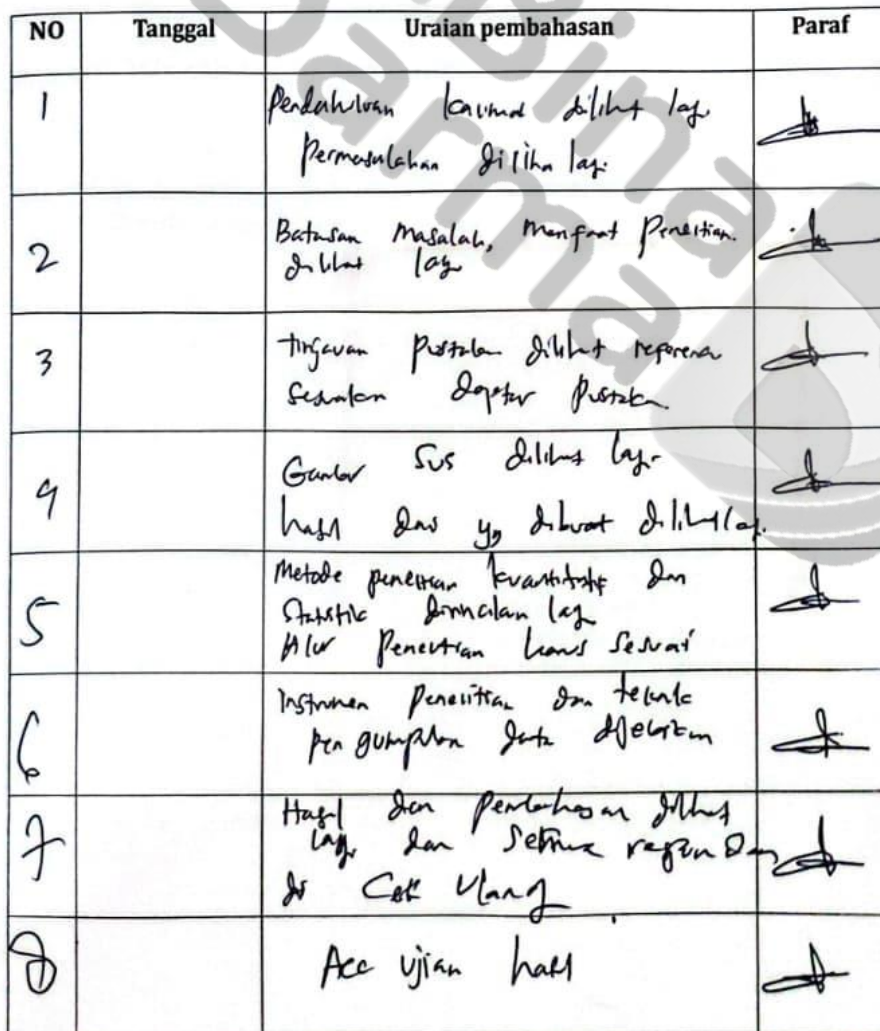 Bina
Darma
NO Tanggal Uraian pembahasan Paraf
1 Pendahuluan dilihat lagi
Permasalahan dilihat lagi
2 Batasan Masalah, Manfaat Penelitian
dilihat lagi
3 Tinjauan Pustaka dilihat referensi
Sesuaikan Daftar Pustaka
4 Gambar SUS dilihat lagi
hasil dan yg dibuat dilihat lagi
5 Metode penelitian kuantitatif dan
Statistik lagi
Alur Penelitian harus Sesuai
6 Instrumen Penelitian dan teknik
pengumpulan data dijelaskan
7 Hasil dan Pembahasan dilihat
lagi dan Semua
di Cek Ulang
8 Acc Ujian hasil